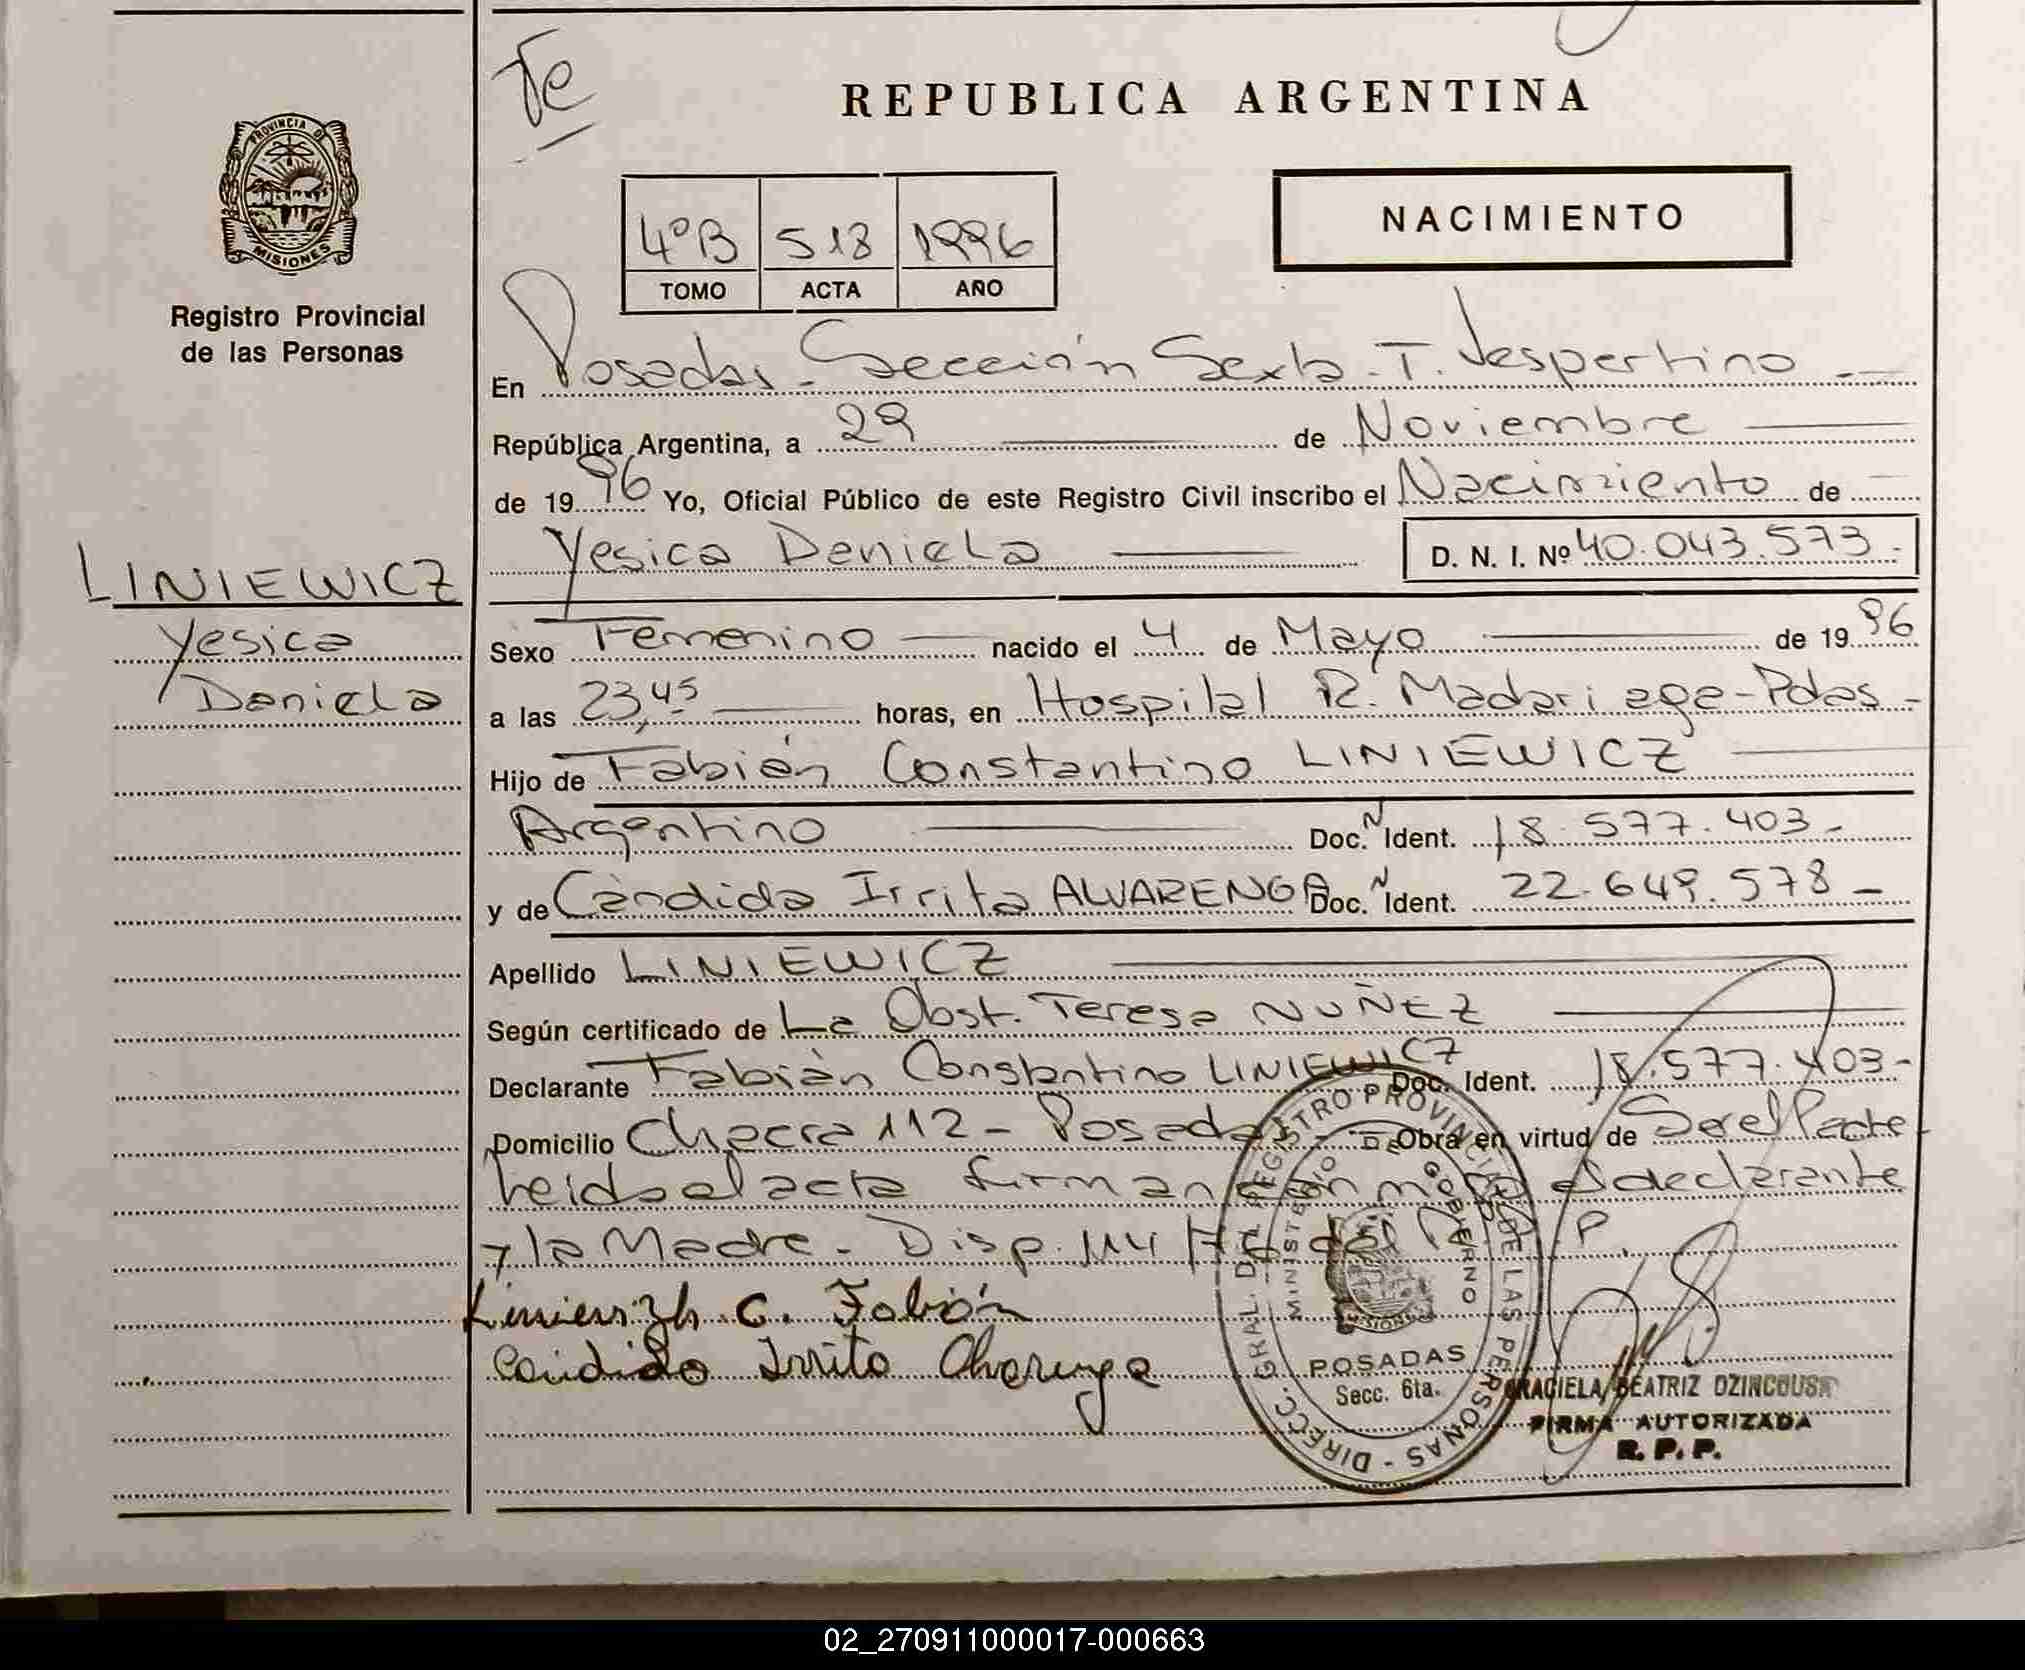 Te
REPUBLICA ARGENTINA
PROVINCIA DE
MISIONES
Registro Provincial
de las Personas
4ºB 518 1996
TOMO ACTA AÑO
NACIMIENTO
En Posadas - Sección Sexta - T. Vespertino
República Argentina, a 29 de Noviembre
de 1996 Yo, Oficial Público de este Registro Civil inscribo el Nacimiento de
Yesica Daniela D. N. I. Nº 40.043.573-
LINIEWICZ
Yesica
Daniela
Sexo Femenino nacido el 4 de Mayo de 1996
a las 23,45 horas, en Hospital R. Madariaga-Pdas-
Hijo de Fabián Constantino LINIEWICZ
Argentino Doc. N Ident. 18.577.403-
y de Càndida Irrita ALVARENGA Doc. N Ident. 22.649.578-
Apellido LINIEWICZ
Según certificado de La Obst. Teresa NUÑEZ
Declarante Fabián Constantino LINIEWICZ Doc. Ident. 18.577.403-
Domicilio Chacra 112 - Posadas - Obra en virtud de Ser el Padre
Leida el acta firman conmigo el declarante
y la Madre - Disp. 114
C. Fabián
Candida Irrita
DIRECC. GRAL. DEL REGISTRO PROVINCIAL DE LAS PERSONAS -
MINISTERIO GOBIERNO
MISIONES
POSADAS
Secc. 6ta.
GRACIELA BEATRIZ
FIRMA AUTORIZADA
R. P. P.
02_270911000017-000663